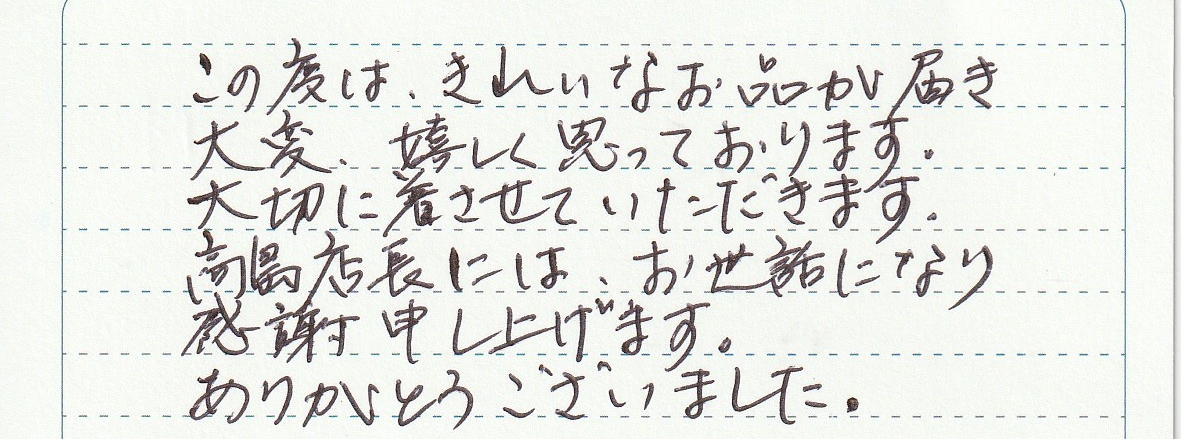 この度は、きれいなお品が届き
大変、嬉しく思っております。
大切に着させていただきます。
高島店長には、お世話になり
感謝申し上げます。
ありがとうございました。